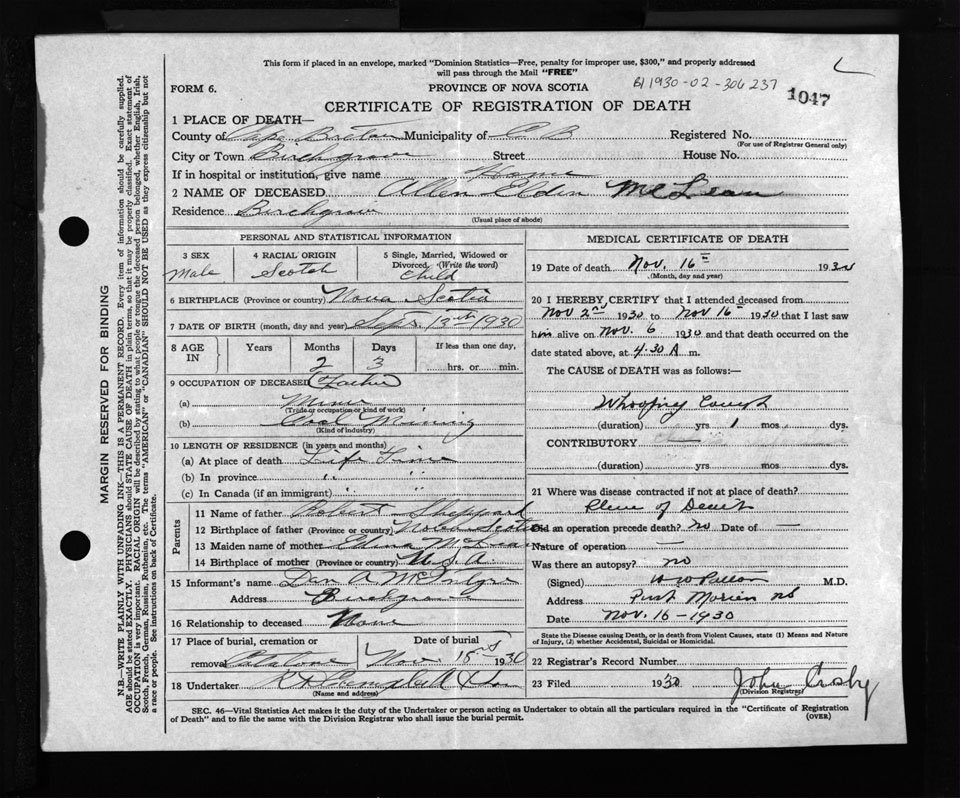 This form if placed in an envelope, marked "Dominion Statistics—Free, penalty for improper use, $300," and properly addressed
will pass through the Mail "FREE"
FORM 6. PROVINCE OF NOVA SCOTIA 1930-02-306237 1047
CERTIFICATE OF REGISTRATION OF DEATH
1 PLACE OF DEATH—
County of Cape Breton Municipality of C B Registered No.
(For use of Registrar General only)
City or Town Birchgrove Street House No.
If in hospital or institution, give name Home
2 NAME OF DECEASED Allen Eldon McLean
Residence Birchgrove
(Usual place of abode)
PERSONAL AND STATISTICAL INFORMATION
3 SEX 4 RACIAL ORIGIN 5 Single, Married, Widowed or
Divorced (Write the word)
Male Scotch Child
6 BIRTHPLACE (Province or country) Nova Scotia
7 DATE OF BIRTH (month, day and year) Sept. 13th 1930
8 AGE IN Years Months Days If less than one day,
2 3 hrs. or min.
9 OCCUPATION OF DECEASED (Father)
(a) Miner
(Trade or occupation or kind of work)
(b) Coal Mining
(Kind of industry)
10 LENGTH OF RESIDENCE (in years and months)
(a) At place of death Life Time
(b) In province " "
(c) In Canada (if an immigrant) " "
Parents
11 Name of father Robert Sheppard
12 Birthplace of father (Province or country) Nova Scotia
13 Maiden name of mother Edna McLean
14 Birthplace of mother (Province or country) U.S.A.
15 Informant's name Dan A McIntyre
Address Birchgrove
16 Relationship to deceased None
17 Place of burial, cremation or Date of burial
removal Nov. 18 1930
18 Undertaker Campbell & Son
(Name and address)
MEDICAL CERTIFICATE OF DEATH
19 Date of death Nov. 16th 1930
(Month, day and year)
20 I HEREBY CERTIFY that I attended deceased from
Nov 2nd 1930 to Nov 16 1930 that I last saw
him alive on Nov. 6 1930 and that death occurred on the
date stated above, at 4.30 A m.
The CAUSE of DEATH was as follows:—
Whooping Cough
(duration) yrs 1 mos. dys.
CONTRIBUTORY
(duration) yrs mos. dys.
21 Where was disease contracted if not at place of death?
Place of Death
Did an operation precede death? no Date of —
Nature of operation —
Was there an autopsy? no
(Signed) M.D.
Address Port Morien NS
Date Nov. 16-1930
State the Disease causing Death, or in death from Violent Causes, state (1) Means and Nature
of Injury, (2) whether Accidental, Suicidal or Homicidal.
22 Registrar's Record Number
23 Filed 1930 John Crosby
(Division Registrar)
SEC. 46—Vital Statistics Act makes it the duty of the Undertaker or person acting as Undertaker to obtain all the particulars required in the "Certificate of Registration
of Death" and to file the same with the Division Registrar who shall issue the burial permit. (OVER)
MARGIN RESERVED FOR BINDING
N.B.—WRITE PLAINLY WITH UNFADING INK—THIS IS A PERMANENT RECORD. Every item of information should be carefully supplied.
AGE should be stated EXACTLY. PHYSICIANS should STATE CAUSE OF DEATH in plain terms, so that it may be properly classified. Exact statement of
OCCUPATION is very important. RACIAL ORIGIN will be described by stating to what people or tongue the deceased person belonged, whether English, Irish,
Scotch, French, German, Russian, Ruthenian, etc. The terms "AMERICAN" or "CANADIAN" SHOULD NOT BE USED as they express citizenship but not
a race or people. See instructions on back of Certificate.